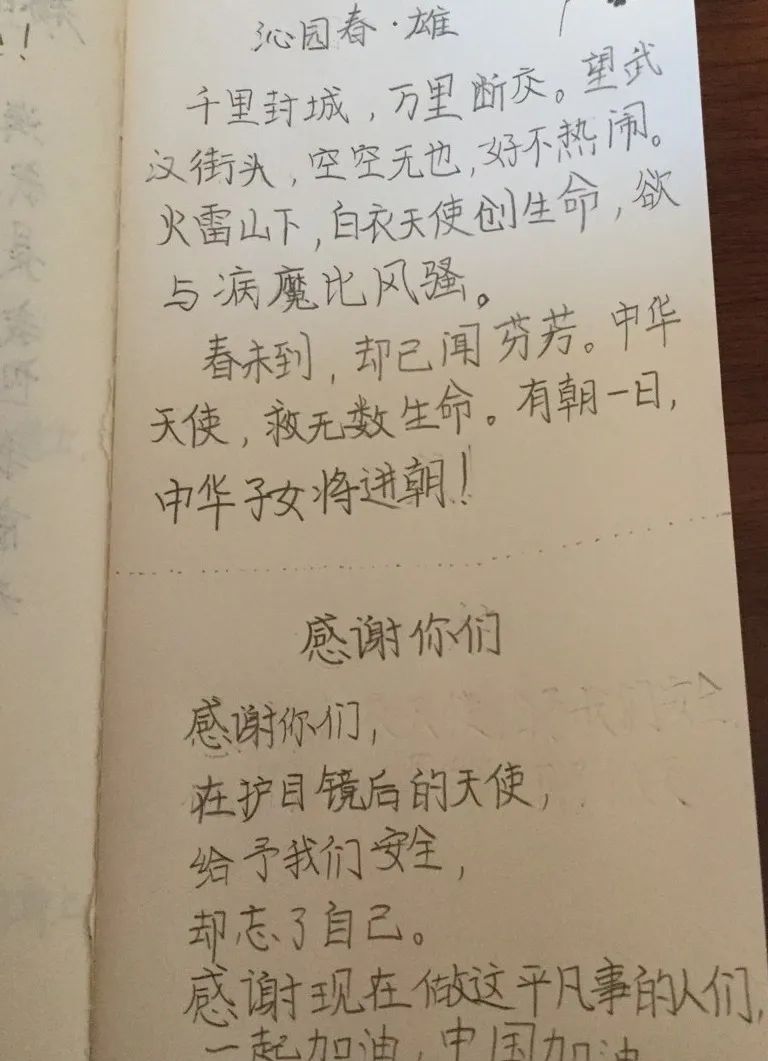 沁园春·雄
千里封城，万里断交。望武
汉街头，空空无也，好不热闹。
火雷山下，白衣天使创生命，欲
与病魔比风骚。
春未到，却已闻芬芳。中华
天使，救无数生命。有朝一日，
中华子女将进朝！
感谢你们
感谢你们，
在护目镜后的天使，
给予我们安全，
却忘了自己。
感谢现在做这平凡事的人们，
一起加油，中国加油